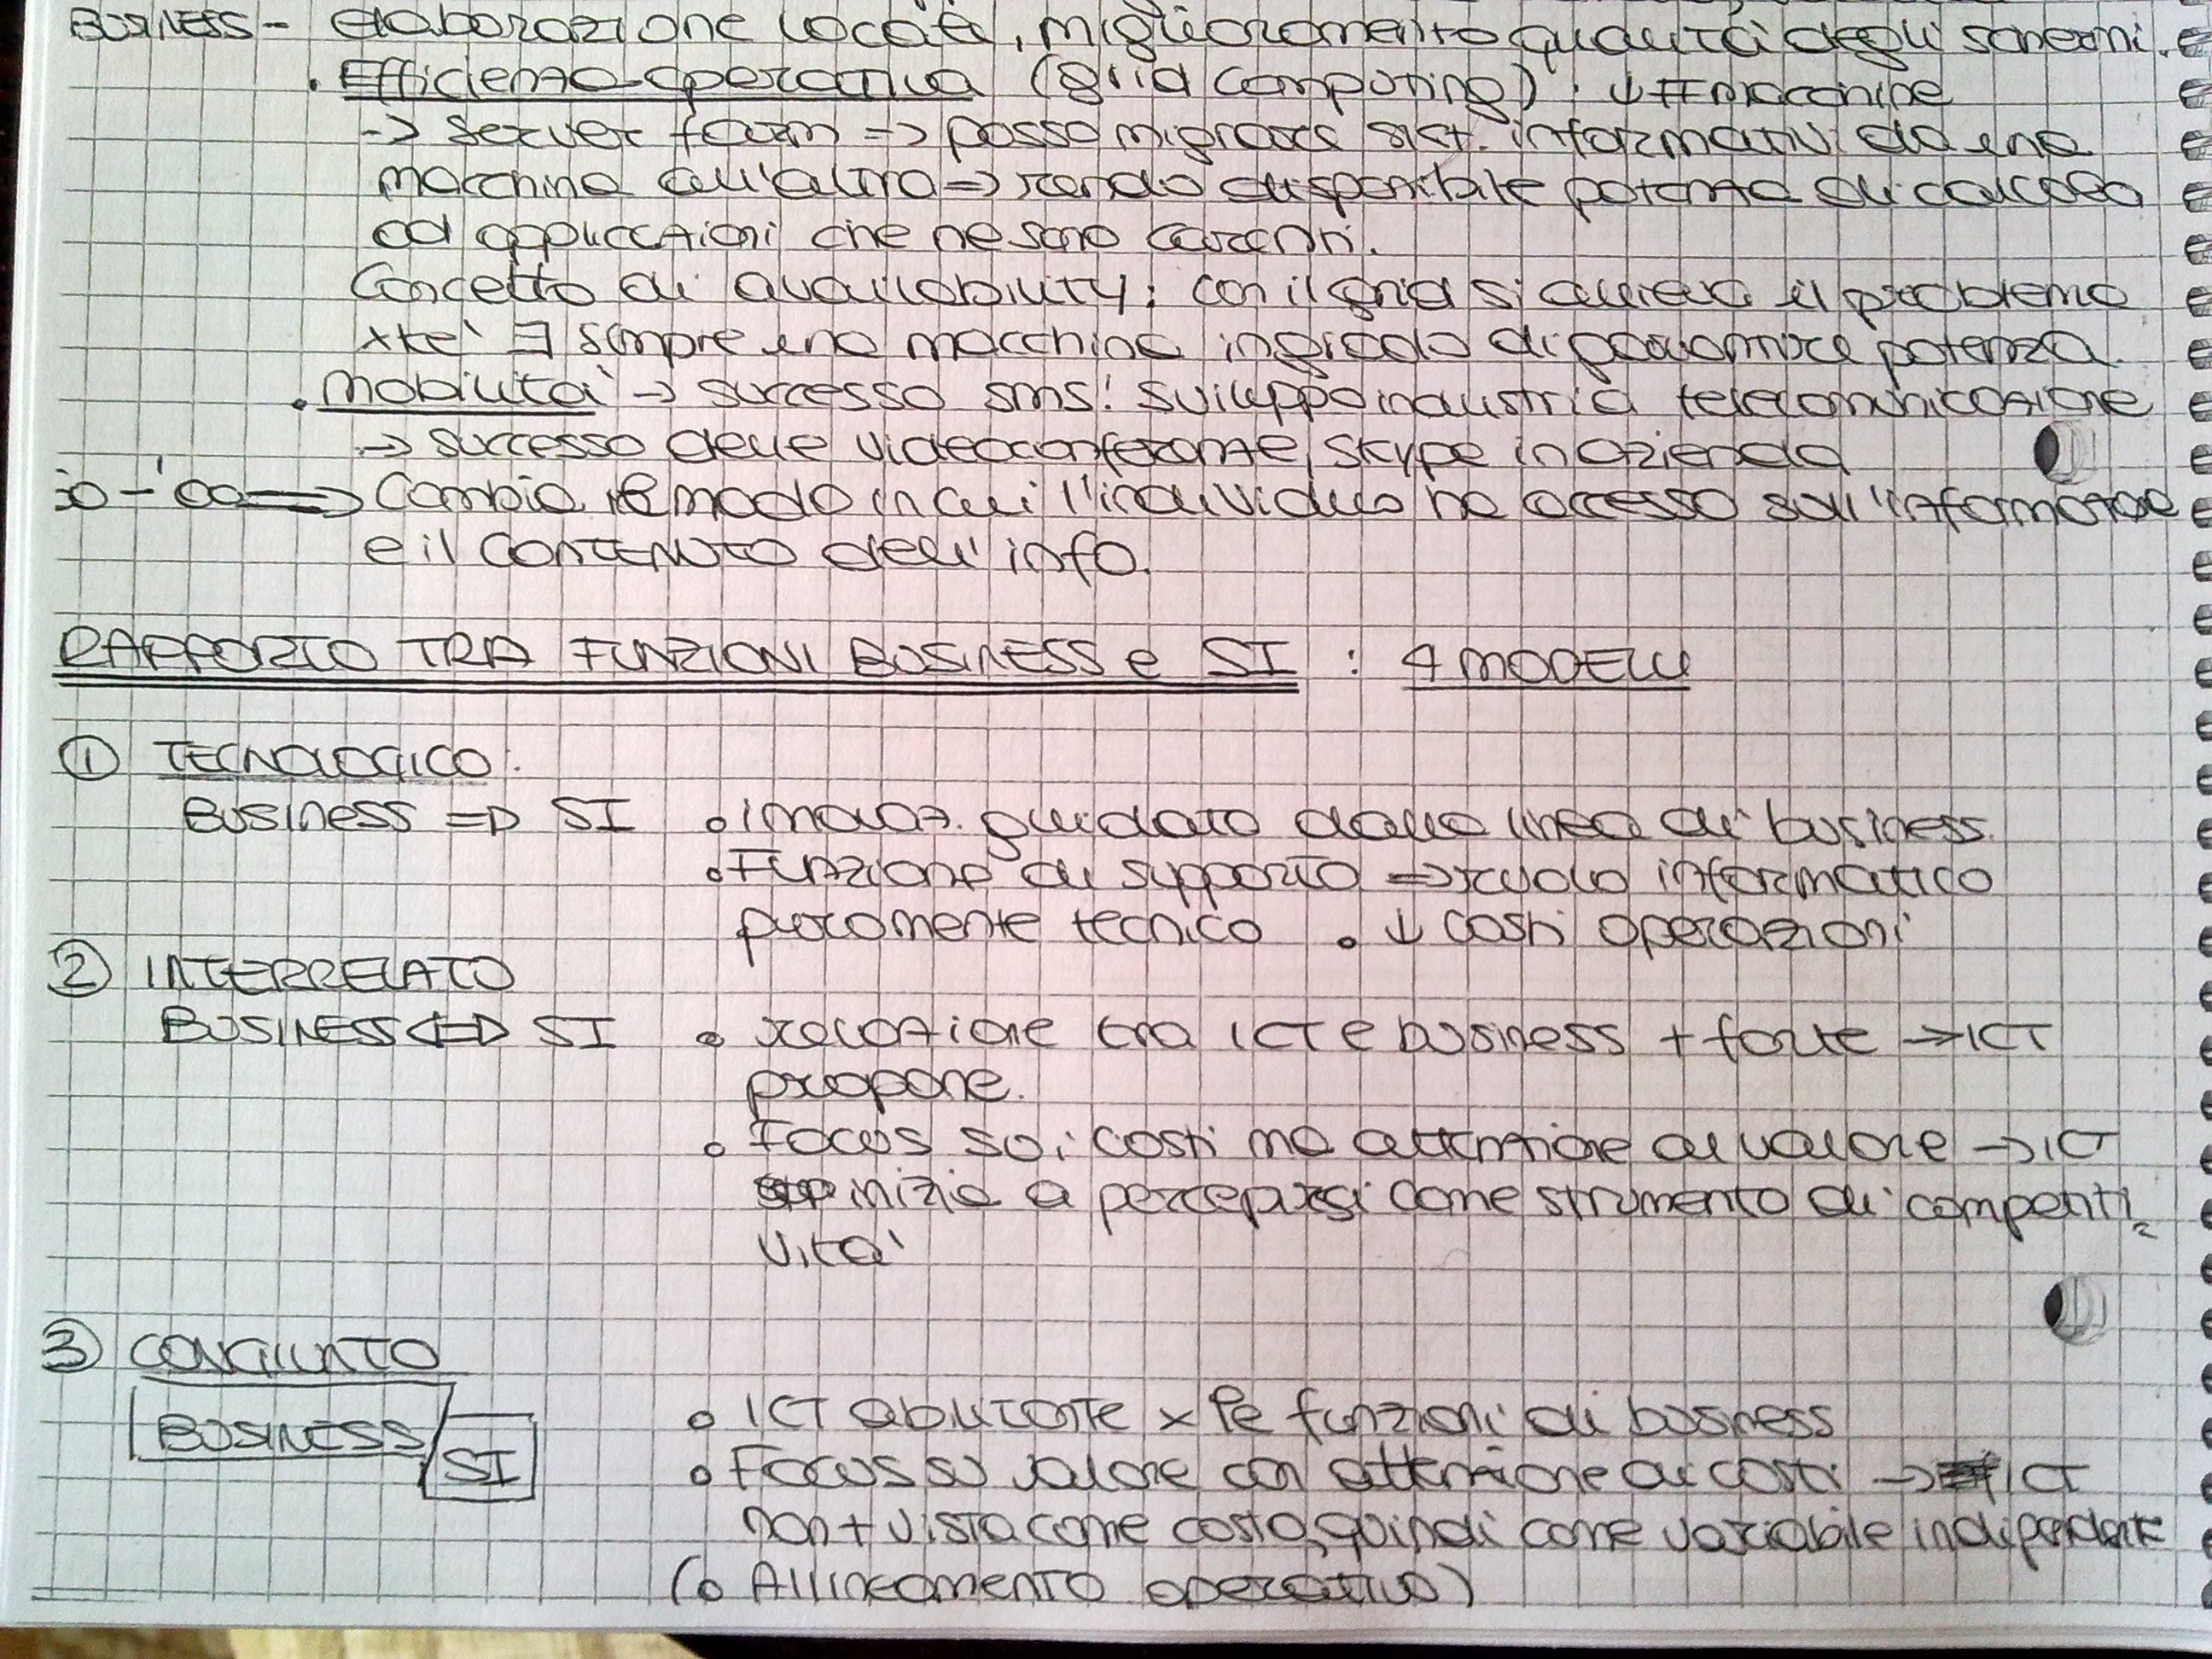 BUSINESS - elaborazione locale, miglioramento qualità degli schermi.
• Efficienza operativa (grid computing): ↓ # macchine
-> server farm => posso migrare sist. informativi da una
macchina all'altra => rendo disponibile potenza di calcolo
ad applicazioni che ne sono carenti.
Concetto di availability: con il grid si allieva il problema
xke' ∃ sempre una macchina in grado di garantire potenza.
• Mobilità -> successo sms! sviluppo industria telecomunicazione
-> successo delle videoconferenze, Skype in azienda
=> Cambia il modo in cui l'individuo ha accesso sull'informazione
e il CONTENUTO dell'info.
RAPPORTO TRA FUNZIONI BUSINESS e SI : 4 MODELLI
① TECNOLOGICO:
BUSINESS => SI • innovaz. guidato dalla linea di business.
• Funzione di supporto => ruolo informatico
puramente tecnico • ↓ costi operazioni
② INTERRELATO
BUSINESS <=> SI • relazione tra ICT e business + forte -> ICT
propone.
• Focus sui costi ma attenzione al valore -> ICT
inizia a percepirsi come strumento di competiti
vita'
③ CONGIUNTO
BUSINESS / SI • ICT abilitante x le funzioni di business
• Focus su valore con attenzione ai costi -> ICT
non + vista come costo, quindi come variabile indipendente
(• Allineamento operativo)